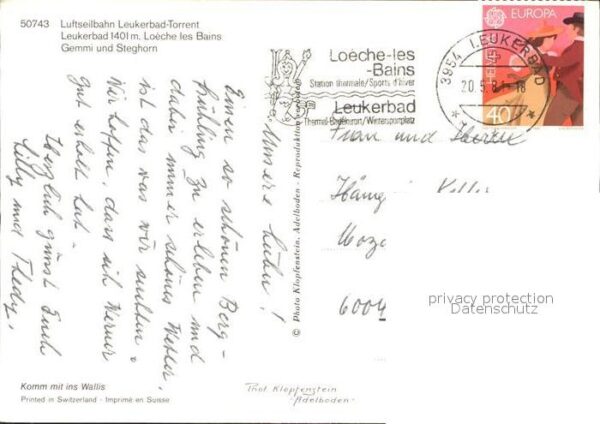 50743 Luftseilbahn Leukerbad-Torrent
Leukerbad 1401 m. Loèche les Bains
Gemmi und Steghorn
Unsere Lieben!
Einen so schönen Berg-
frühling zu erleben und
dabei immer schönes Wetter,
ist das was wir suchten.
Wir hoffen, dass sich Werner
gut erholt hat.
Herzlich grüsst Euch
Lilly und Thedy.
© Photo Klopfenstein, Adelboden - Reproduktion verboten
Loèche-les
-Bains
Station thermale/Sports d'hiver
Leukerbad
Thermal-Badekurort/Wintersportplatz
3954 LEUKERBAD
20.5.81-18
EUROPA
HELVETIA
40
Frau und Herrn
Keller
6004
privacy protection
Datenschutz
Komm mit ins Wallis
Printed in Switzerland - Imprimé en Suisse
Phot. Klopfenstein
"Adelboden"